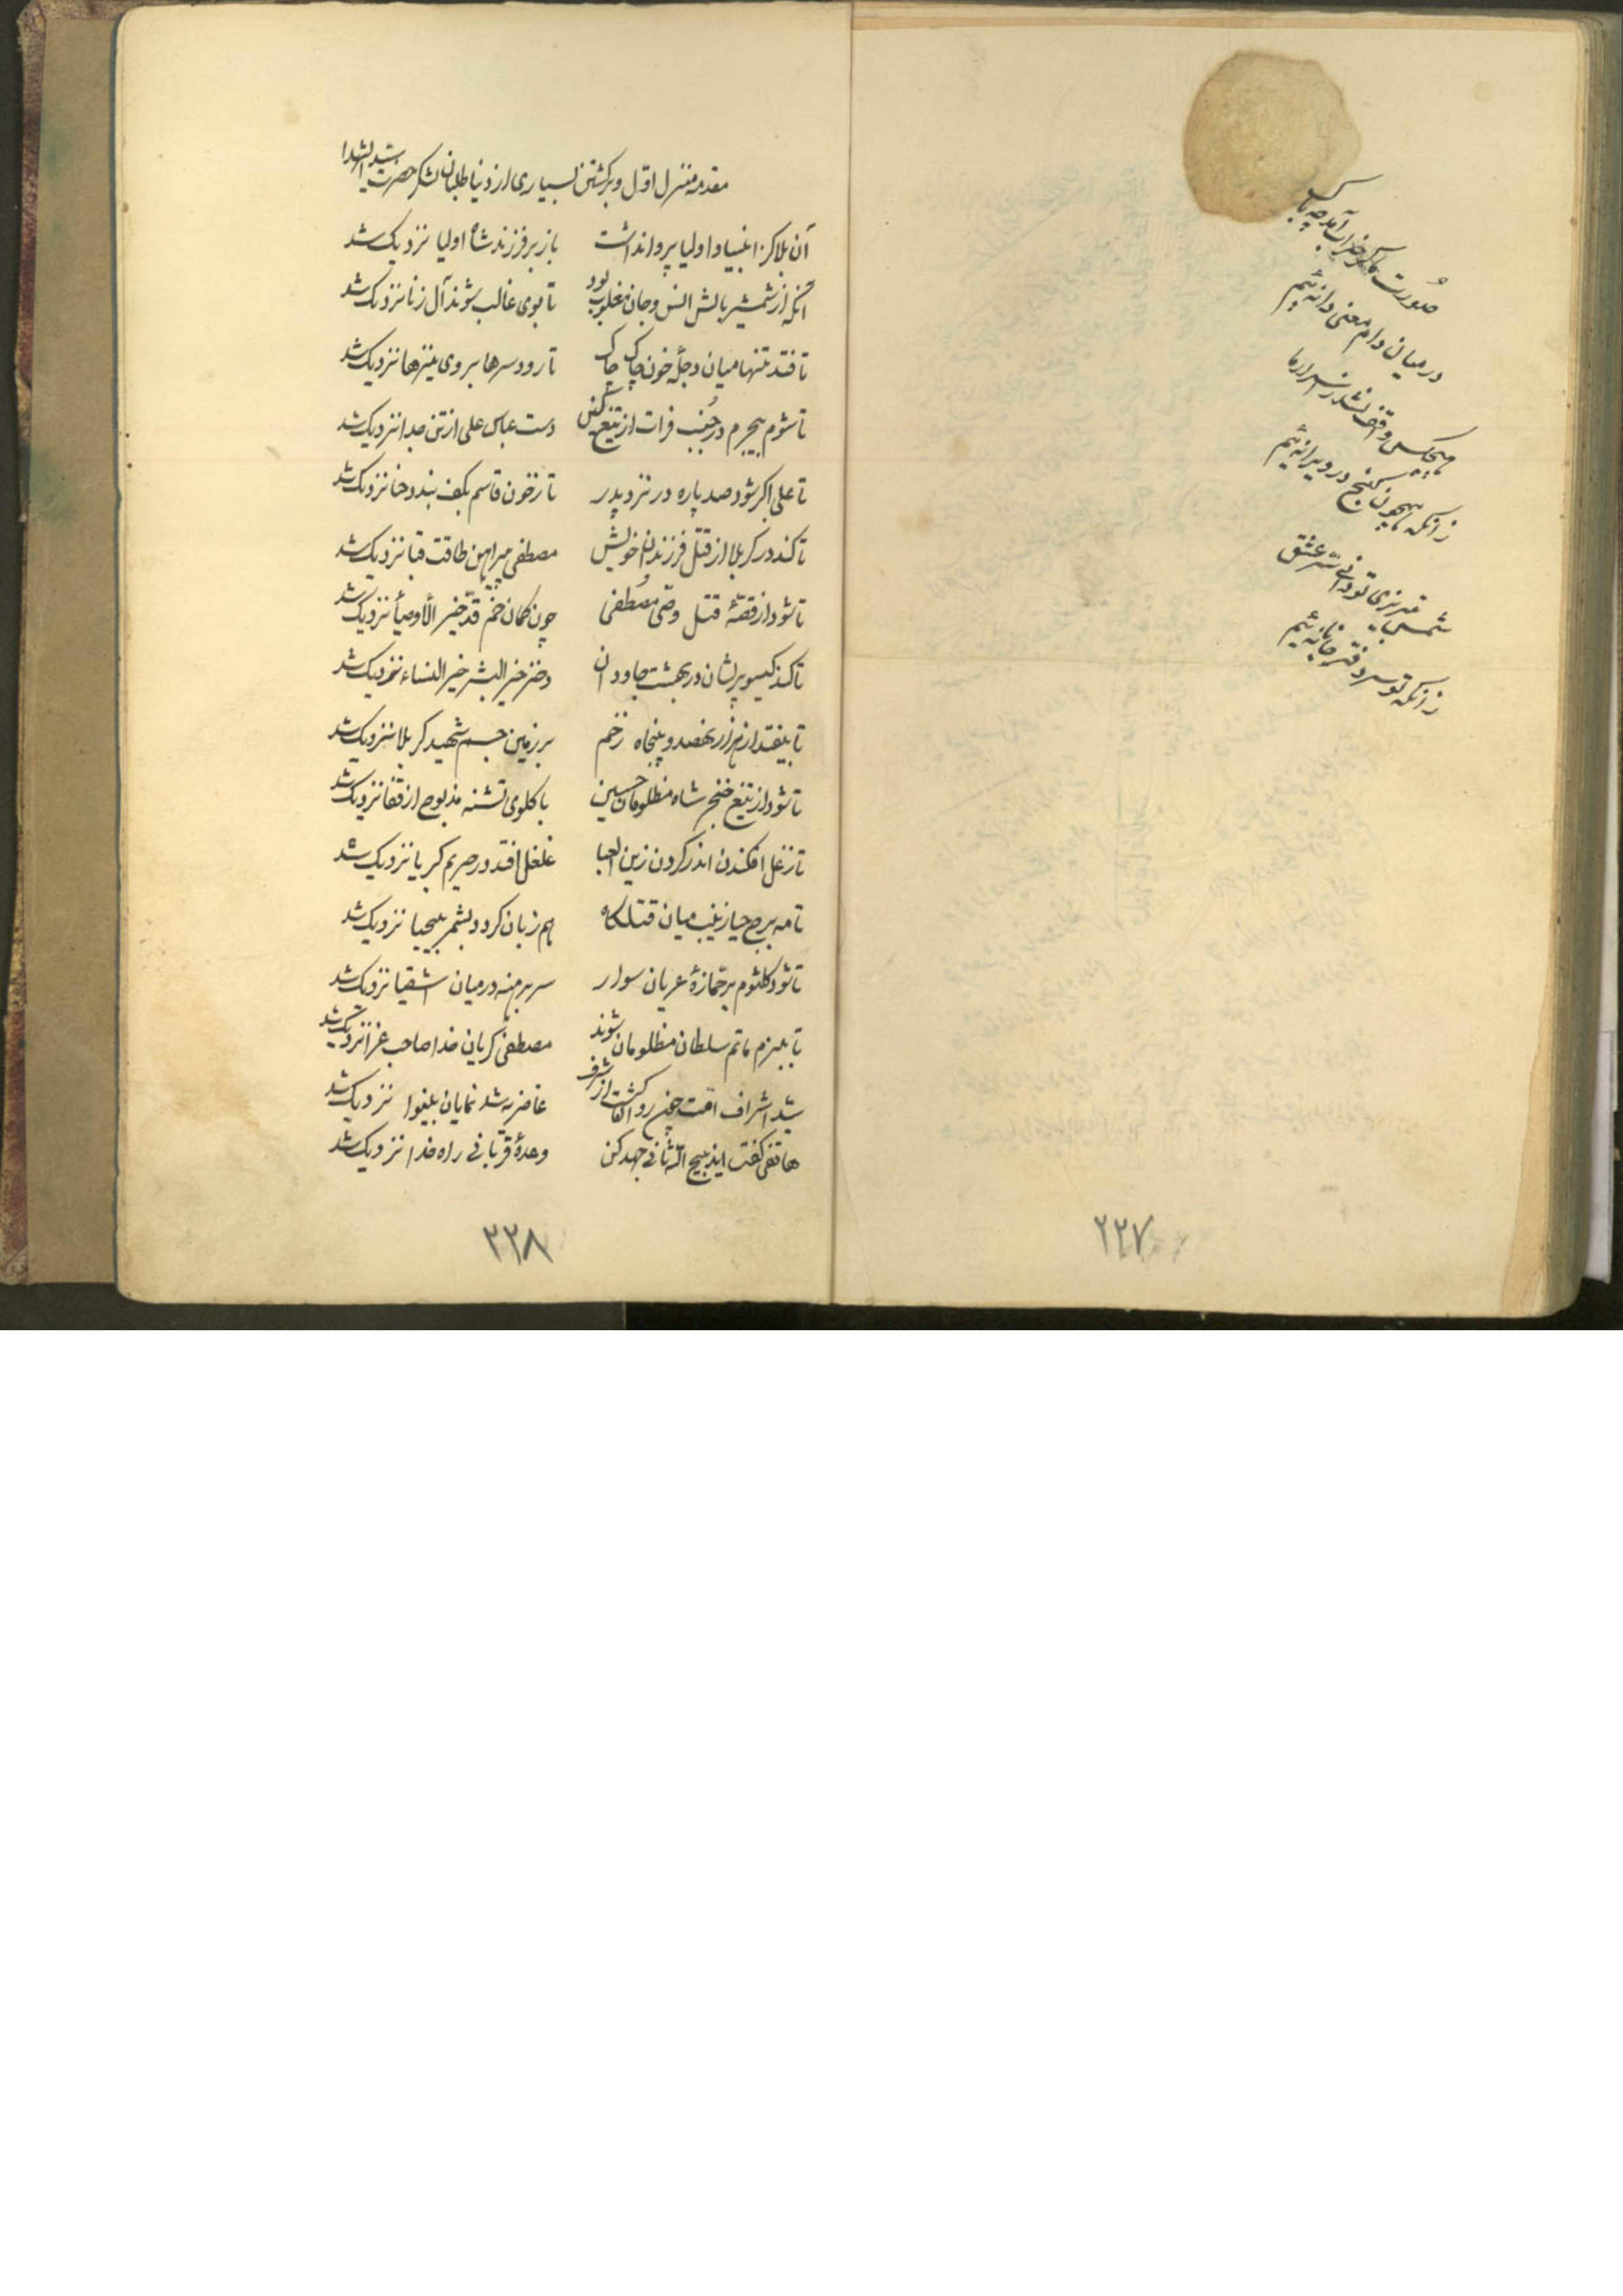 صورت ما گر خراب آمد چه باک
در میان دام معنی دانه‌ئیم
هیچکس واقف نشد ز اسرار ما
زانکه همچون گنج در ویرانه‌ئیم
شمس تبریزی تو دانی سر عشق
زانکه تو سر دفتر جانانه‌ئیم
۲۲۷
مقدمه منزل اول و برکشتن بسیاری از دنیا طلبان لشکر حضرت سید الشهدا
آن بلا کز انبیا و اولیا پروا نداشت باز بر فرزند شاه اولیا نزدیک شد
آنکه از شمشیر بابش انس و جان مغلوب بود تا بوی غالب شوند آل زنا نزدیک شد
تا فتد تنها میان دجلهٔ خون چاک چاک تا رود سرها بروی نیزها نزدیک شد
تا شود بیجرم در جنب فرات از تیغ کین دست عباس علی از تن جدا نزدیک شد
تا علی اکبر شود صد پاره در نزد پدر تا ز خون قاسم بکف بندد حنا نزدیک شد
تا کند در کربلا از قتل فرزندان خویش مصطفی پیراهن طاقت قبا نزدیک شد
تا شود از قصّهٔ قتل وصّی مصطفی چون کمان خم قدّ خیر الأوصیا نزدیک شد
تا کند کیسو پریشان در بهشت جاودان دختر خیر البشر خیر النساء نزدیک شد
تا بیفتد از هزار نهصد و پنجاه زخم بر زمین جسم شهید کربلا نزدیک شد
تا شود از تیغ خنجر شاه مظلومان حسین با کلوی تشنه مذبوح از قفا نزدیک شد
تا ز غل افکندن اندر کردن زین العبا غلغل افتد در حریم کبریا نزدیک شد
تا مه برج حیا زینب میان قتلکاه هم زبان کردد بشمر بیحیا نزدیک شد
تا شود کلثوم بر جمّازهٔ عریان سوار سر برهنه در میان اشقیا نزدیک شد
تا ببزم ماتم سلطان مظلومان شوند مصطفی کریان خدا صاحب عزا نزدیک شد
سید اشراف امت چون رو کشت از شرف غاضریه شد نمایان نینوا نزدیک شد
هاتفی کفت ایذبیح الله ثانی جهد کن وعدهٔ قربانی راه خدا نزدیک شد
۲۲۸